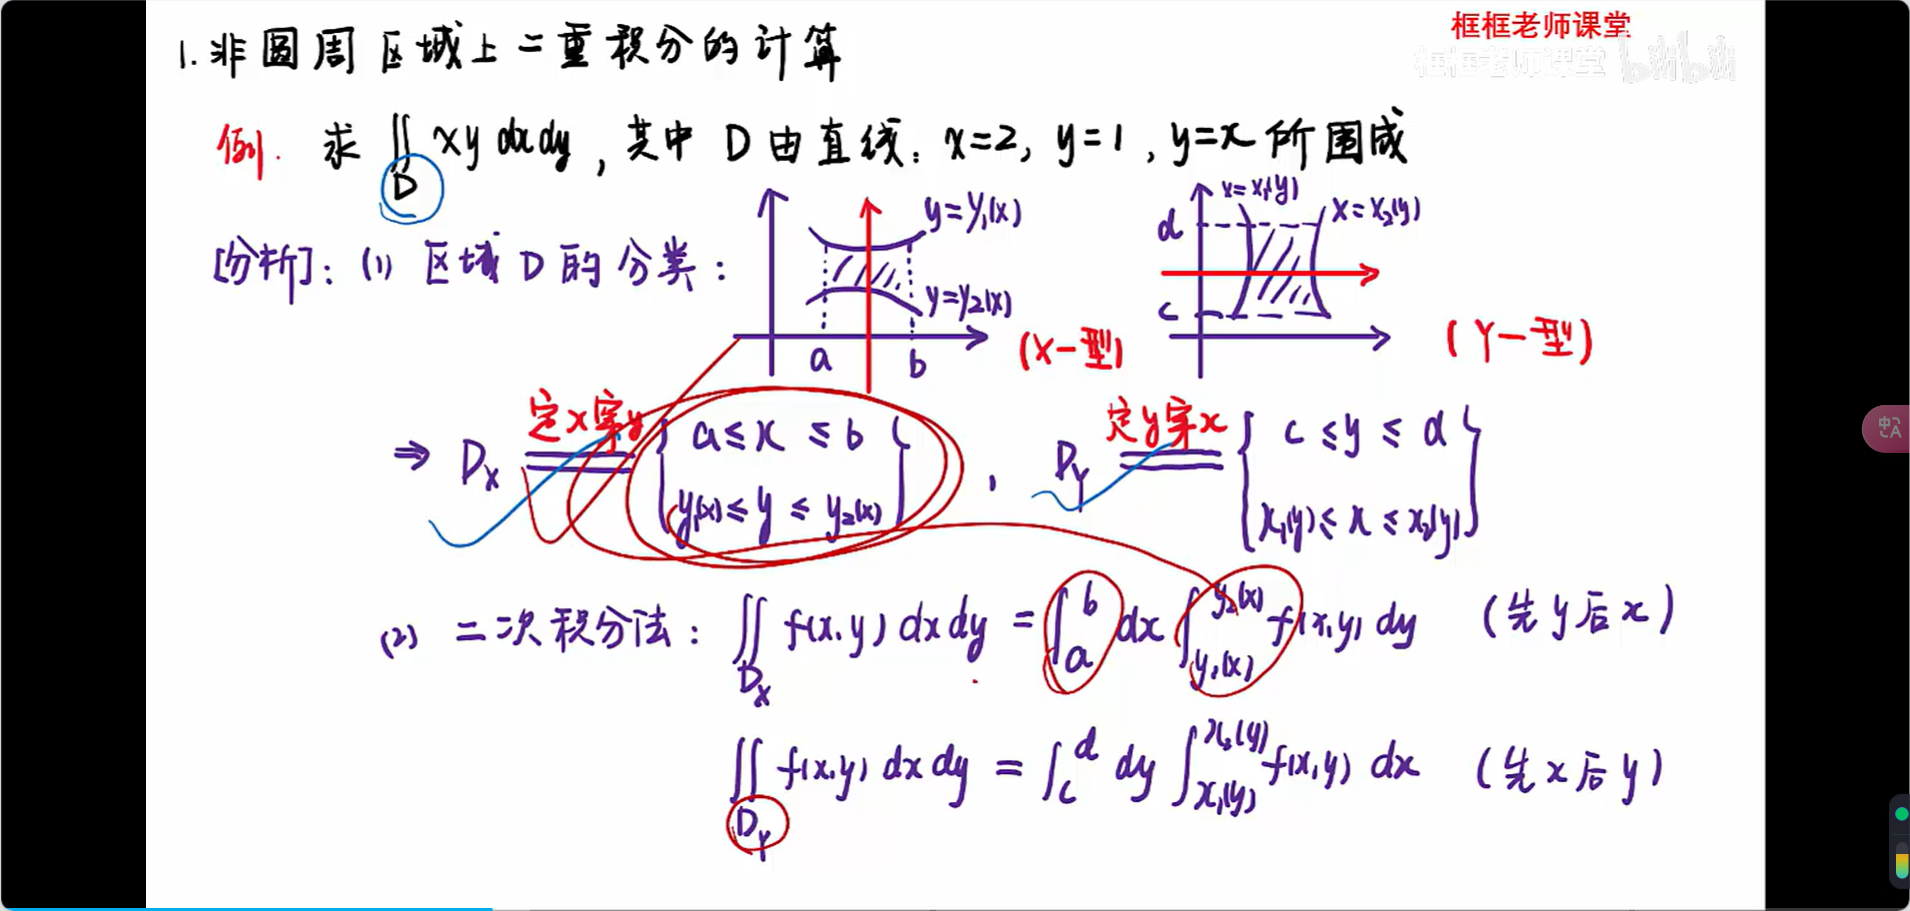 框框老师课堂
框框老师课堂 bilibili
1. 非圆周区域上二重积分的计算
例. 求 ∬_D xy dxdy, 其中 D 由直线: x=2, y=1, y=x 所围成
[分析]: (1) 区域 D 的分类:
y=y₁(x)
y=y₂(x)
a b
(X-型)
x=x₁(y)
x=x₂(y)
d
c
(Y-型)
⇒ D_X 定x穿y { a≤x≤b
y₁(x)≤y≤y₂(x) } ,
D_Y 定y穿x { c≤y≤d
x₁(y)≤x≤x₂(y) }
(2) 二次积分法: ∬_{D_X} f(x,y) dxdy = ∫_a^b dx ∫_{y₁(x)}^{y₂(x)} f(x,y) dy (先y后x)
∬_{D_Y} f(x,y) dxdy = ∫_c^d dy ∫_{x₁(y)}^{x₂(y)} f(x,y) dx (先x后y)
中A